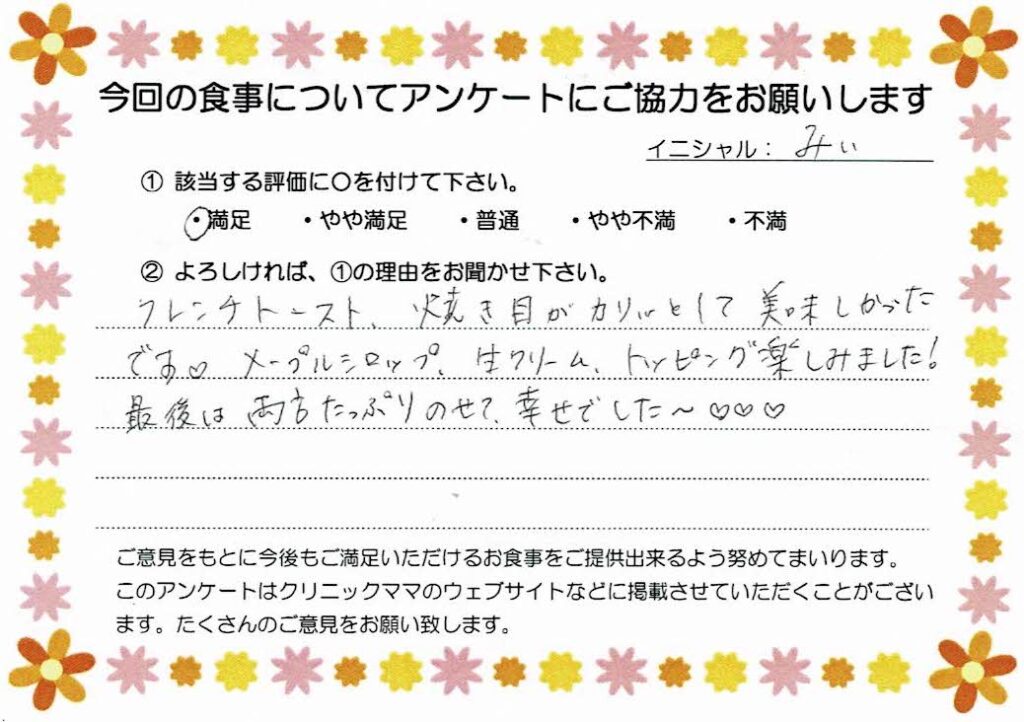 今回の食事についてアンケートにご協力をお願いします
イニシャル： みぃ
① 該当する評価に○を付けて下さい。
・満足 ・やや満足 ・普通 ・やや不満 ・不満
② よろしければ、①の理由をお聞かせ下さい。
フレンチトースト、焼き目がカリッとして美味しかった
です♡ メープルシロップ、生クリーム、トッピング楽しみました!
最後は両方たっぷりのせて、幸せでした〜♡♡♡
ご意見をもとに今後もご満足いただけるお食事をご提供出来るよう努めてまいります。
このアンケートはクリニックママのウェブサイトなどに掲載させていただくことがござい
ます。たくさんのご意見をお願い致します。